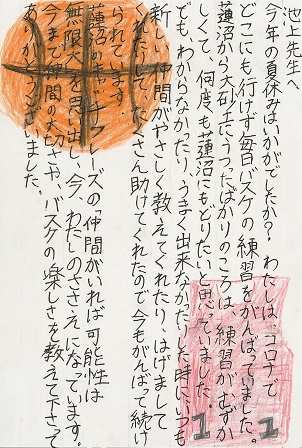 池上先生へ
今年の夏休みはいかがでしたか？わたしは、コロナで
どこにも行けず毎日バスケの練習をがんばっていました。
蓮沼から大砂土にうつったばかりのころは、練習がむずか
しくて、何度も蓮沼にもどりたいと思っていました。
でも、わからなかったり、うまく出来なかったりした時に、いつも
新しい仲間がやさしく教えてくれたり、はげまして
くれたりして、たくさん助けてくれたので今もがんばって続け
られています。
蓮沼の キャッチフレーズの「仲間がいれば可能性は
無限大」を思い出し、今、わたしのささえになっています。
今まで仲間の大切さや、バスケの楽しさを教えて下さって
ありがとうございました。
11